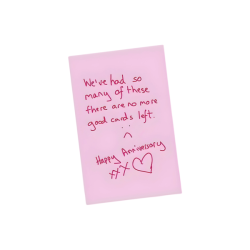 We've had so
many of these
there are no more
good cards left.
:(
Happy Anniversary
xxx♡